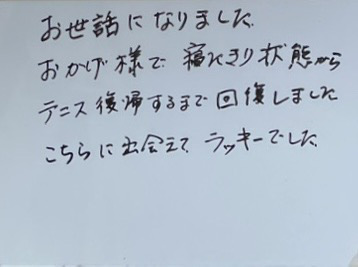 お世話になりました.
おかげ様で 寝たきり状態から
テニス復帰するまで回復しました
こちらに出会えて ラッキーでした.